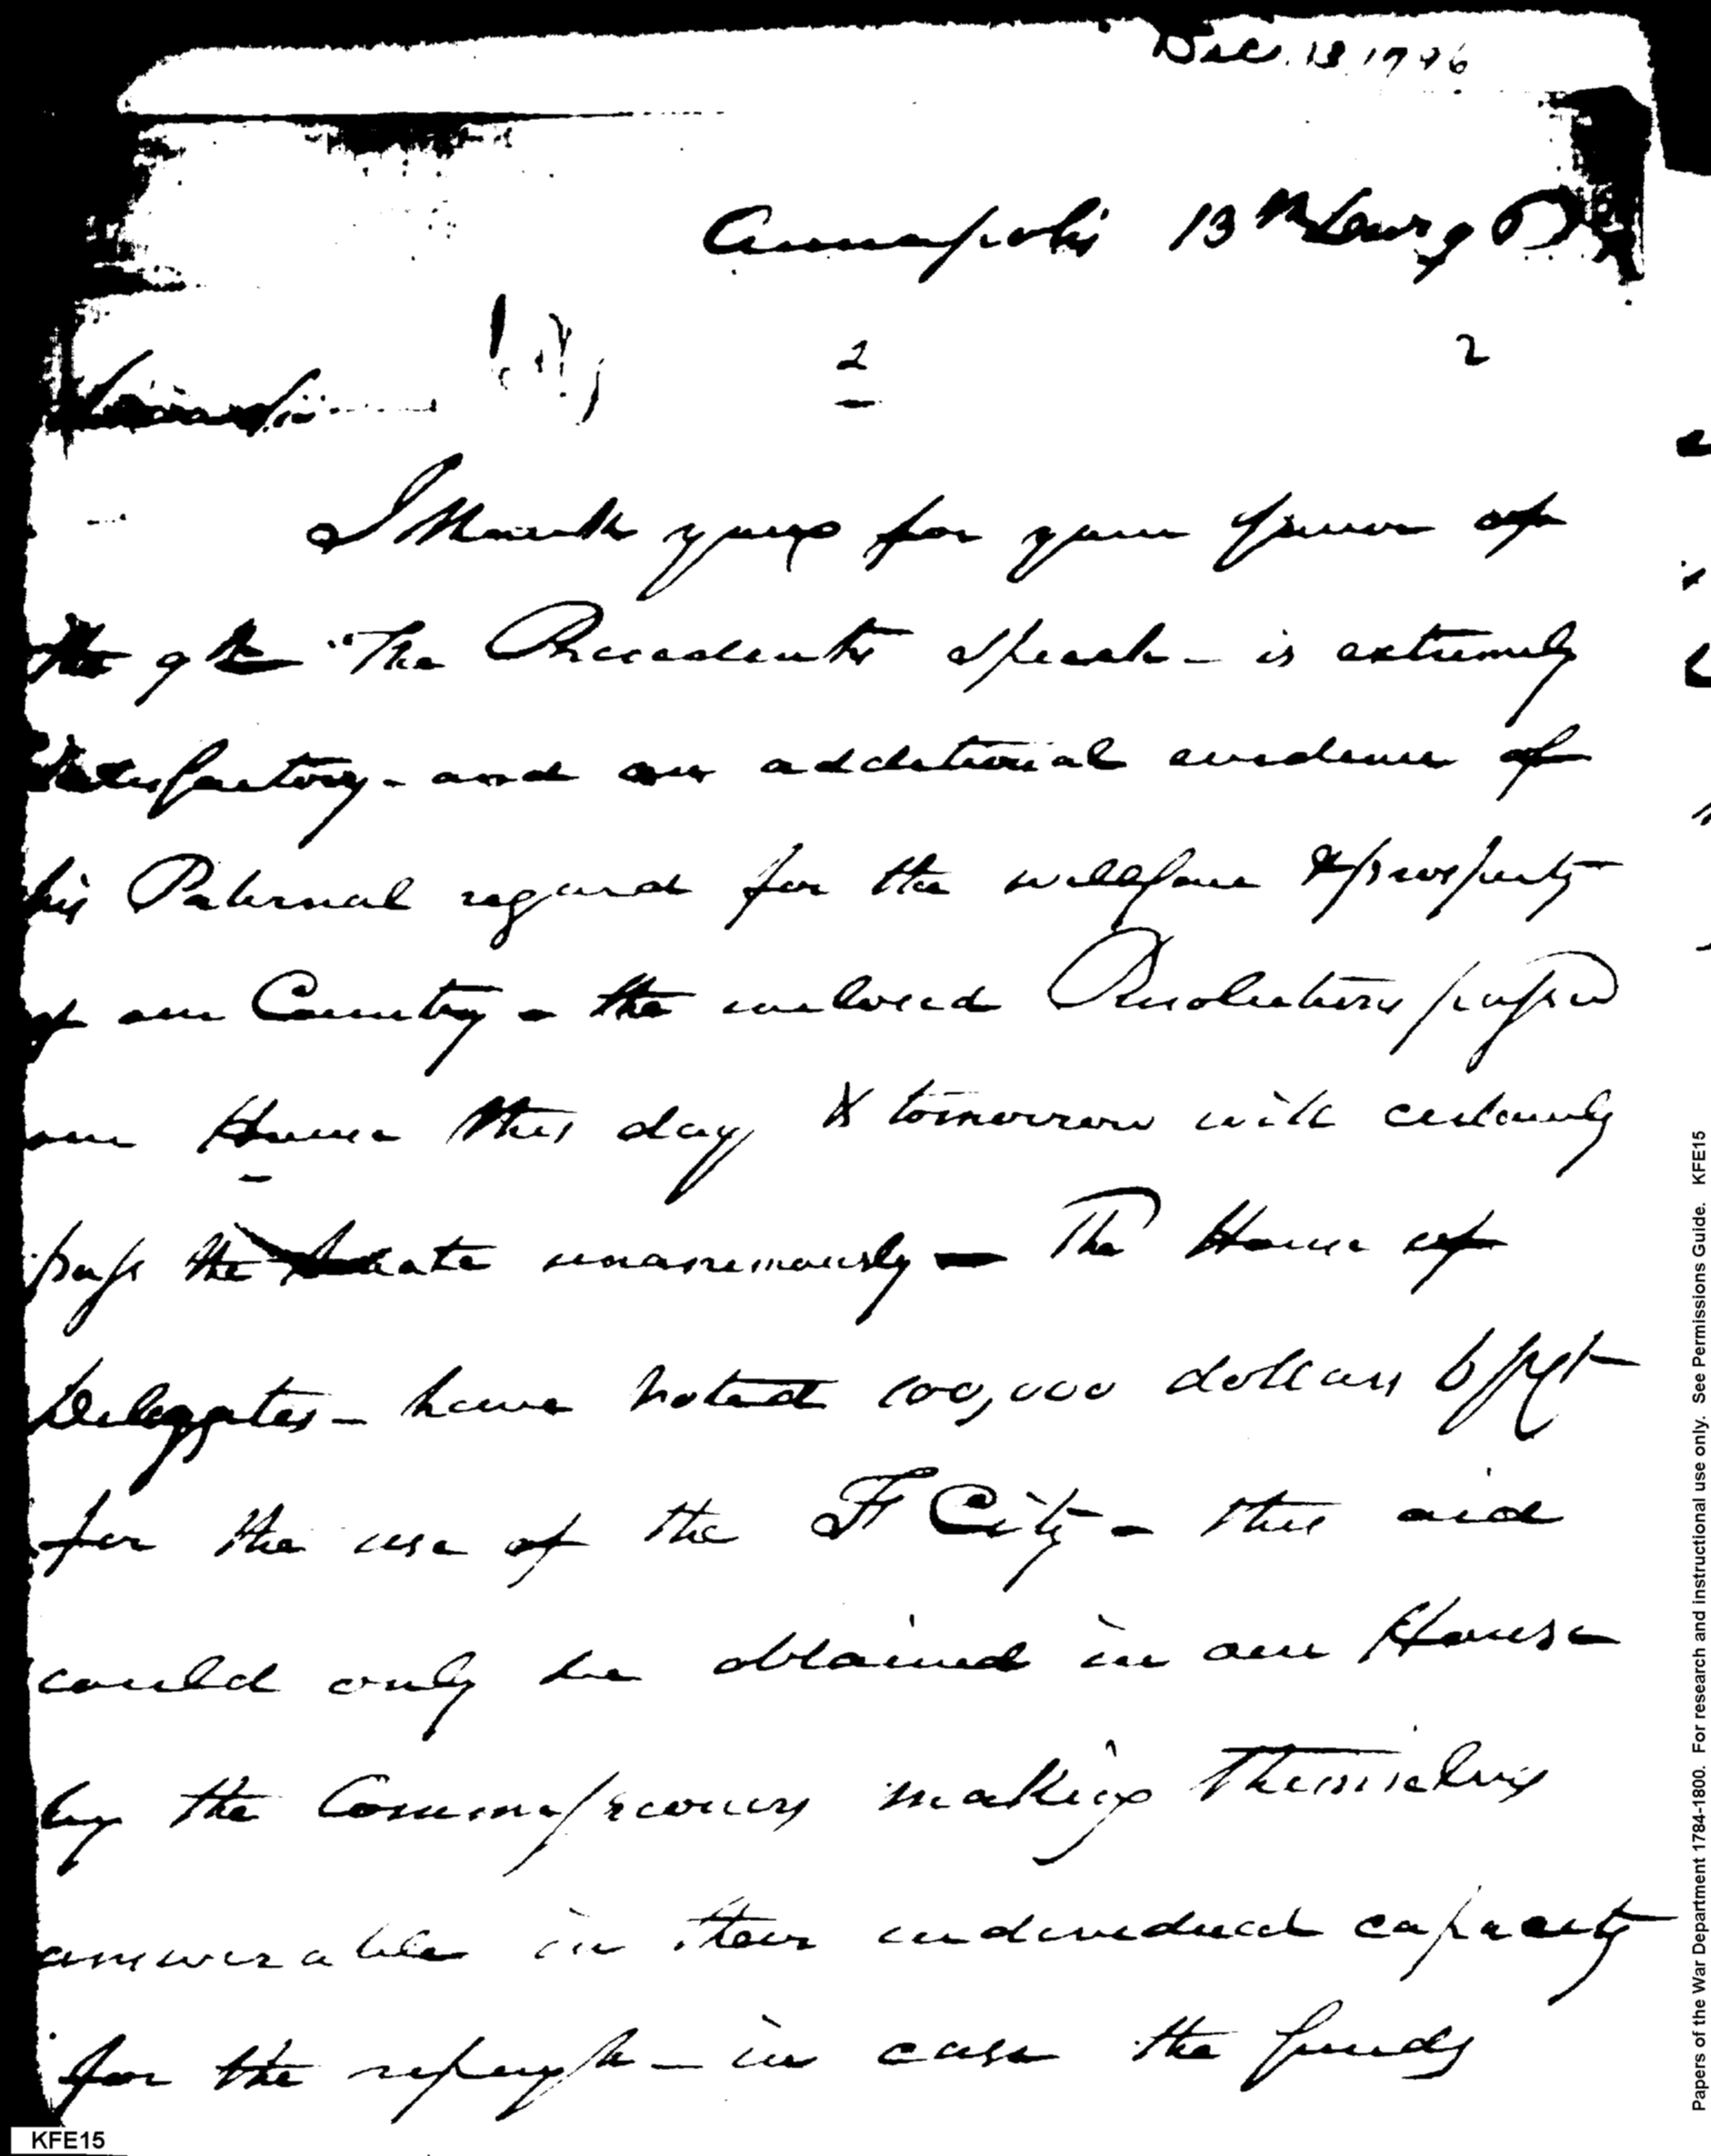 Dec. 13 1796
Annapolis 13th
2
2
Dear Sir
I thank you for your favor of
the 9th "The Presidents Speech - is extremely
satisfactory - and an additional evidence of
his Paternal regard for the wellfare & prosperity
of our Country - the inclosed Resolutions passed
our House this day & tomorrow will certainly
pass the Senate unanimously - The House of
Delegates - have voted 100,000 dollars 6 pCt
for the use of the F City - this aid
could only be obtained in our House
by the Commissioners making themselves
answerable in their individual capacity
for the repayt - in case the funds
Papers of the War Department 1784-1800. For research and instructional use only. See Permissions Guide. KFE15
KFE15